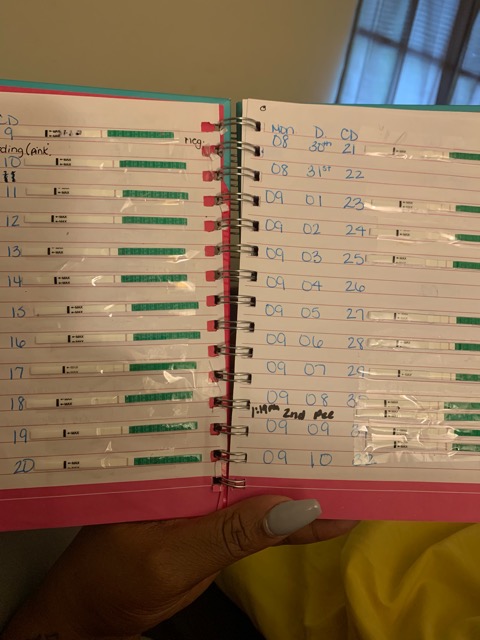 CD
9 neg.
10
11
12
13
14
15
16
17
18
19
20
Mon D. CD
08 30th 21
08 31st 22
09 01 23
09 02 24
09 03 25
09 04 26
09 05 27
09 06 28
09 07 29
09 08
2nd Pee
09 09
09 10